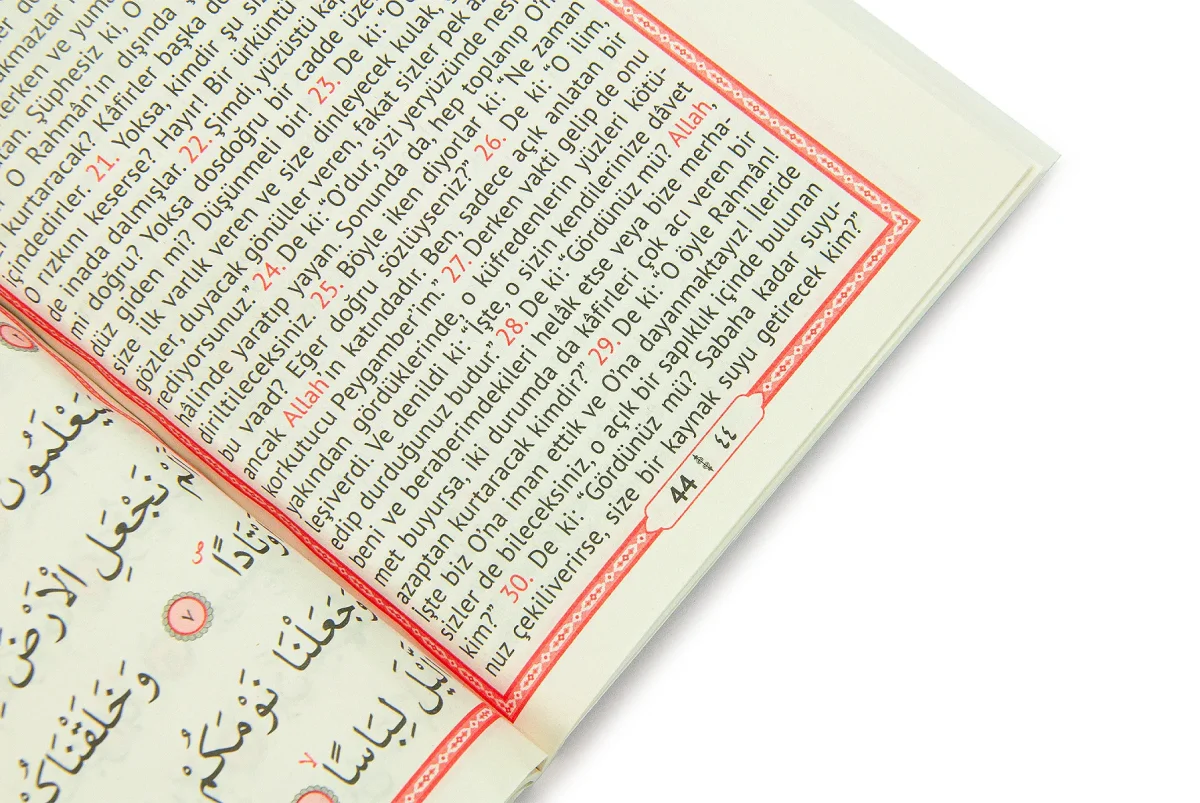 erken ve
Şüphesiz ki, O
O Rahmân’ın dışında
kurtaracak? Kâfirler başka
içindedirler. 21. Yoksa, kimdir şu
O rızkını keserse? Hayır! Bir ürküntü
ve inada dalmışlar. 22. Şimdi, yüzüstü
mi doğru? Yoksa dosdoğru bir cadde
düz giden mi? Düşünmeli bir! 23. De ki: “O
size ilk varlık veren ve size dinleyecek kulak
gözler, duyacak gönüller veren, fakat sizler pek
rediyorsunuz.” 24. De ki: “O’dur sizi yeryüzünde
hâlinde yaratıp yayan. Sonunda da, hep toplanıp
diriltileceksiniz. 25. Böyle iken diyorlar ki: “Ne zaman
bu vaad? Eğer doğru sözlüyseniz?” 26. De ki: “O ilim,
ancak Allah’ın katındadır. Ben, sadece açık anlatan bir
korkutucu Peygamber’im. 27. Derken vakti gelip de onu
yakından gördüklerinde, o küfredenlerin yüzleri kötü-
leşiverdi. Ve denildi ki: “İşte, o sizin kendilerinize dâvet
edip durduğunuz budur.” 28. De ki: “Gördünüz mü? Allah,
beni ve beraberimdekileri helâk etse veya bize merha-
met buyursa, iki durumda da kâfirleri çok acı veren bir
azaptan kurtaracak kimdir?” 29. De ki: “O öyle Rahmân!
İşte biz O’na iman ettik ve O’na dayanmaktayız! İleride
sizler de bileceksiniz, o açık bir sapıklık içinde bulunan
kim?” 30. De ki: “Gördünüz mü? Sabaha kadar suyu-
nuz çekiliverirse, size bir kaynak suyu getirecek kim?”
44 ٤٤
نَجْعَلِ الْاَرْضَ
٧ وَخَلَقْنَا
وَجَعَلْنَا نَوْمَكُمْ
لِبَاسًا